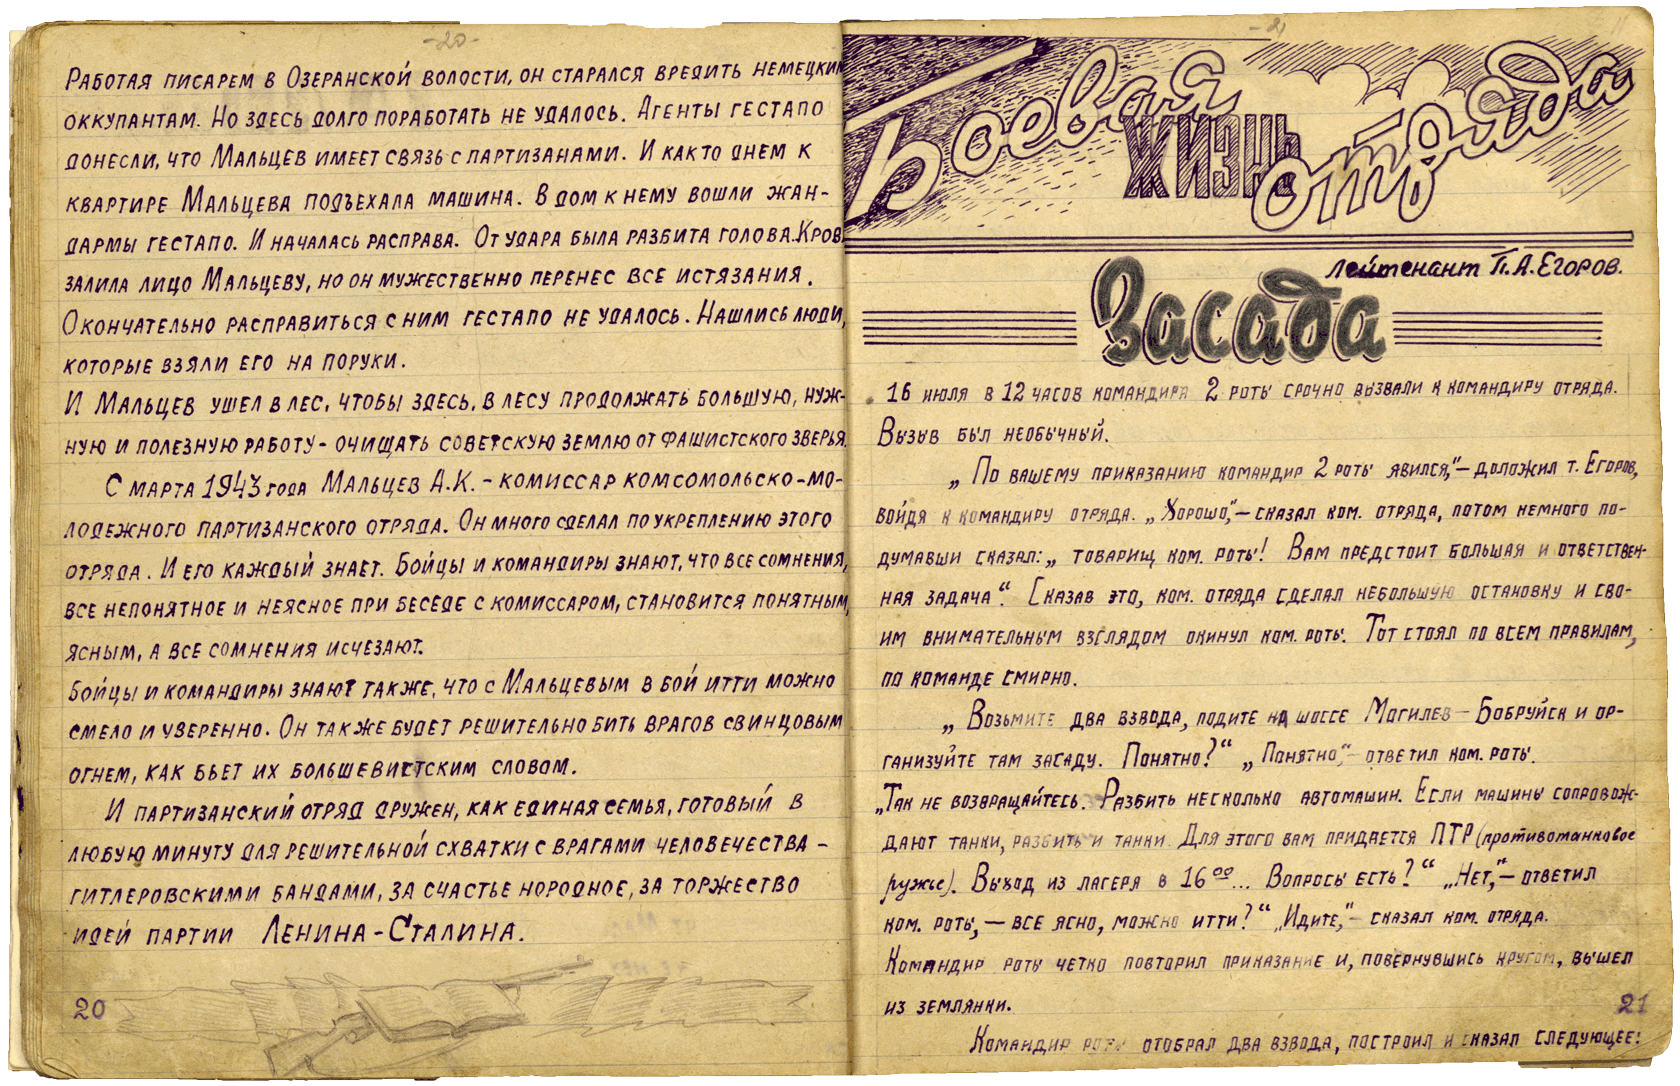 -20-
Работая писарем в Озеранской волости, он старался вредить немецким
оккупантам. Но здесь долго поработать не удалось. Агенты гестапо
донесли, что Мальцев имеет связь с партизанами. И както днем к
квартире Мальцева подъехала машина. В дом к нему вошли жан-
дармы гестапо. И началась расправа. От удара была разбита голова. Кров
залила лицо Мальцеву, но он мужественно перенес все истязания.
Окончательно расправиться с ним гестапо не удалось. Нашлись люди,
которые взяли его на поруки.
И Мальцев ушел в лес, чтобы здесь, в лесу продолжать большую, нуж-
ную и полезную работу - очищать советскую землю от фашистского зверья.
С марта 1943 года Мальцев А.К. - комиссар комсомольско-мо-
лодежного партизанского отряда. Он много сделал по укреплению этого
отряда. И его каждый знает. Бойцы и командиры знают, что все сомнения,
все непонятное и неясное при беседе с комиссаром, становится понятным,
ясным, а все сомнения исчезают.
Бойцы и командиры знают также, что с Мальцевым в бой итти можно
смело и уверенно. Он также будет решительно бить врагов свинцовым
огнем, как бьет их большевистским словом.
И партизанский отряд дружен, как единая семья, готовый в
любую минуту для решительной схватки с врагами человечества -
гитлеровскими бандами, за счастье нородное, за торжество
идей партии Ленина-Сталина.
20
Боевая
жизнь
отряда
лейтенант П.А.Егоров.
Засада
16 июля в 12 часов командира 2 роты срочно вызвали к командиру отряда.
Вызыв был необычный.
„По вашему приказанию командир 2 роты явился," - доложил т. Егоров,
войдя к командиру отряда. „Хорошо," - сказал ком. отряда, потом немного по-
думавши сказал: „товарищ ком. роты! Вам предстоит большая и ответствен-
ная задача". Сказав это, ком. отряда сделал небольшую остановку и сво-
им внимательным взглядом окинул ком. роты. Тот стоял по всем правилам,
по команде смирно.
„Возьмите два взвода, подите на шоссе Могилев - Бобруйск и ор-
ганизуйте там засаду. Понятно?" „Понятно," - ответил ком. роты.
„Так не возвращайтесь. Разбить несколько автомашин. Если машины сопровож-
дают танки, разбить и танки. Для этого вам придается ПТР (противотанковое
ружье). Выход из лагеря в 16⁰⁰... Вопросы есть?" „Нет," - ответил
ком. роты, - все ясно, можно итти?" „Идите," - сказал ком. отряда.
Командир роты четко повторил приказание и, повернувшись кругом, вышел
из землянки.
Командир роты отобрал два взвода, построил и сказал следующее:
21